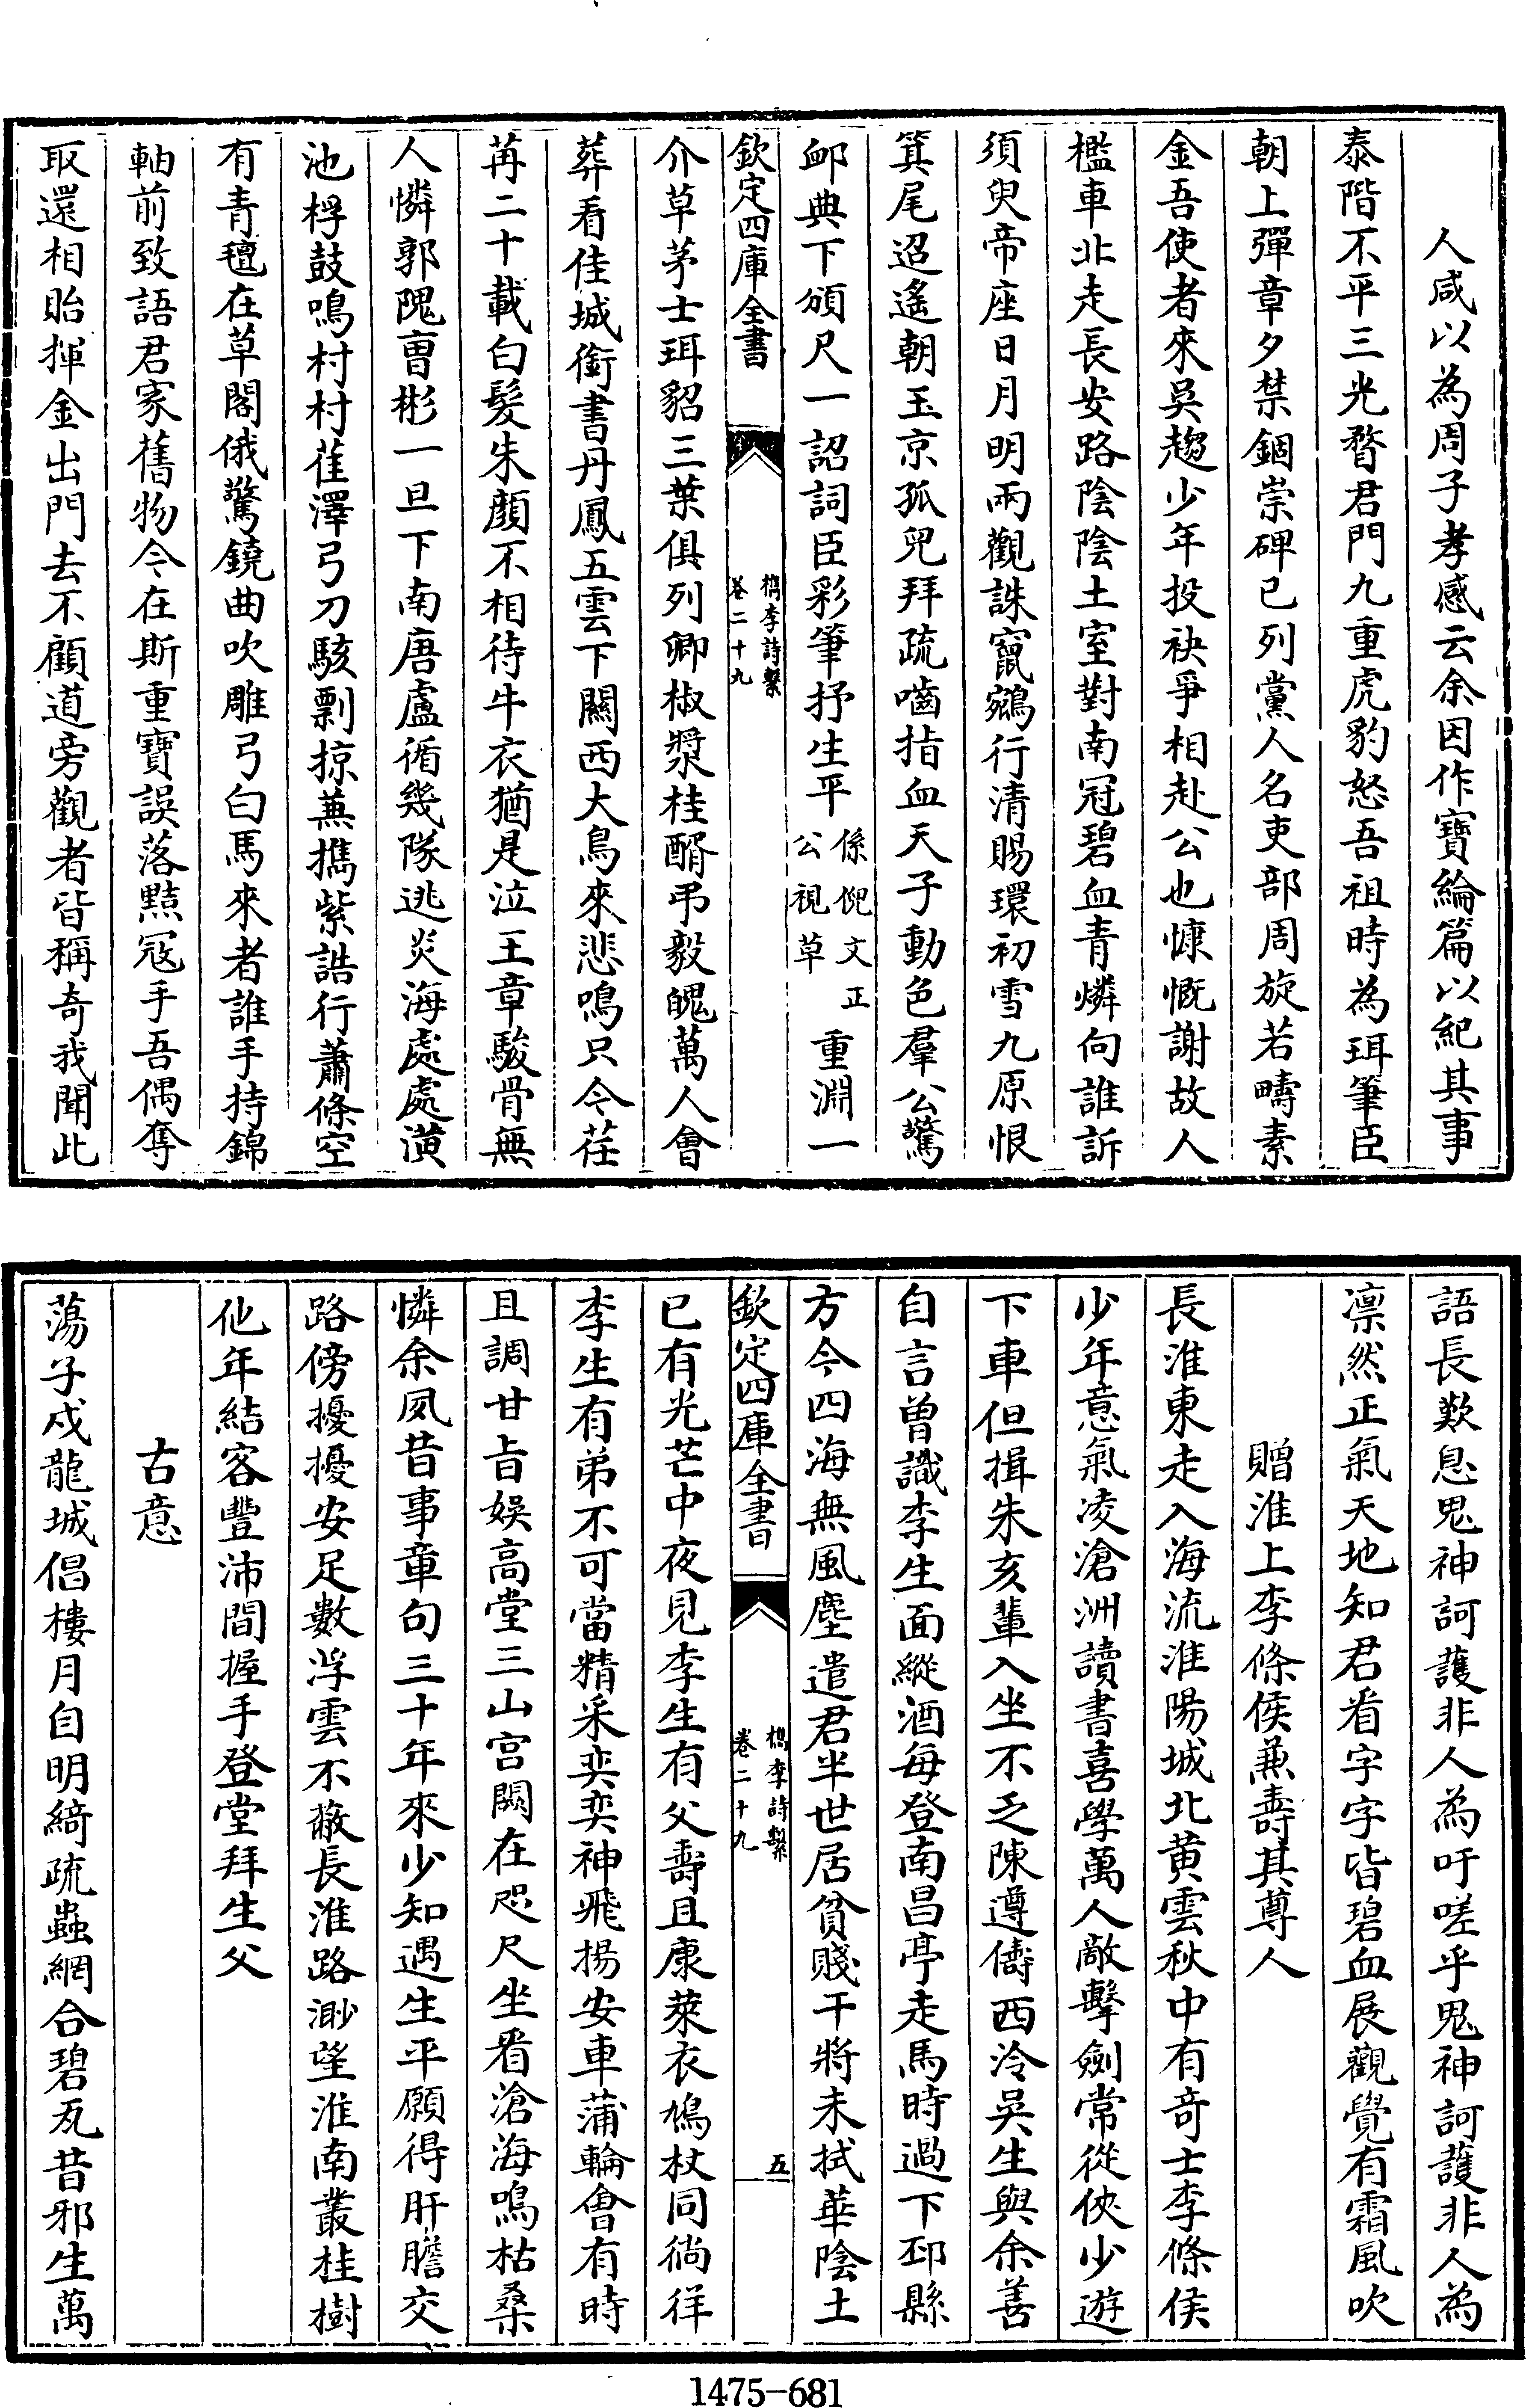 人咸以為周子孝感云余因作寶綸篇以紀其事
泰階不平三光瞀君門九重虎豹怒吾祖時為珥筆臣
朝上彈章夕禁錮崇碑已列黨人名吏部周旋若疇素
金吾使者來吳趨少年投袂爭相赴公也慷慨謝故人
檻車北走長安路陰陰土室對南冠碧血青燐向誰訴
須臾帝座日月明兩觀誅竄鵷行清賜環初雪九原恨
箕尾迢遙朝玉京孤兒拜疏嚙指血天子動色羣公驚
卹典下頒尺一詔詞臣彩筆抒生平係倪文正公視草重淵一
欽定四庫全書
檇李詩繫
卷二十九
介草茅士珥貂三葉俱列卿椒漿桂醑弔毅魄萬人會
葬看佳城銜書丹鳳五雲下關西大鳥來悲鳴只今荏
苒二十載白髮朱顏不相待牛衣猶是泣王章駿骨無
人憐郭隗曹彬一旦下南唐盧循幾隊逃炎海處處潢
池桴鼓鳴村村萑澤弓刀駭剽掠兼攜紫誥行蕭條空
有青氊在草閣俄驚鐃曲吹雕弓白馬來者誰手持錦
軸前致語君家舊物今在斯重寶誤落黠冦手吾偶奪
取還相貽揮金出門去不顧道旁觀者皆稱奇我聞此
語長歎息鬼神訶護非人為吁嗟乎鬼神訶護非人為
凛然正氣天地知君看字字皆碧血展觀覺有霜風吹
贈淮上李條侯兼壽其尊人
長淮東走入海流淮陽城北黄雲秋中有奇士李條侯
少年意氣凌滄洲讀書喜學萬人敵擊劍常從俠少遊
下車但揖朱亥輩入坐不乏陳遵儔西泠吳生與余善
自言曾識李生面縱酒每登南昌亭走馬時過下邳縣
方今四海無風塵遣君半世居貧賤干將未拭華陰土
欽定四庫全書
檇李詩繫
卷二十九
五
已有光芒中夜見李生有父壽且康萊衣鳩杖同徜徉
李生有弟不可當精采奕奕神飛揚安車蒲輪會有時
且調甘旨娛高堂三山宮闕在咫尺坐看滄海鳴枯桑
憐余夙昔事章句三十年來少知遇生平願得肝膽交
路傍擾擾安足數浮雲不蔽長淮路渺望淮南叢桂樹
他年結客豐沛間握手登堂拜生父
古意
蕩子戍龍城倡樓月自明綺疏蟲網合碧瓦昔邪生萬
1475-681